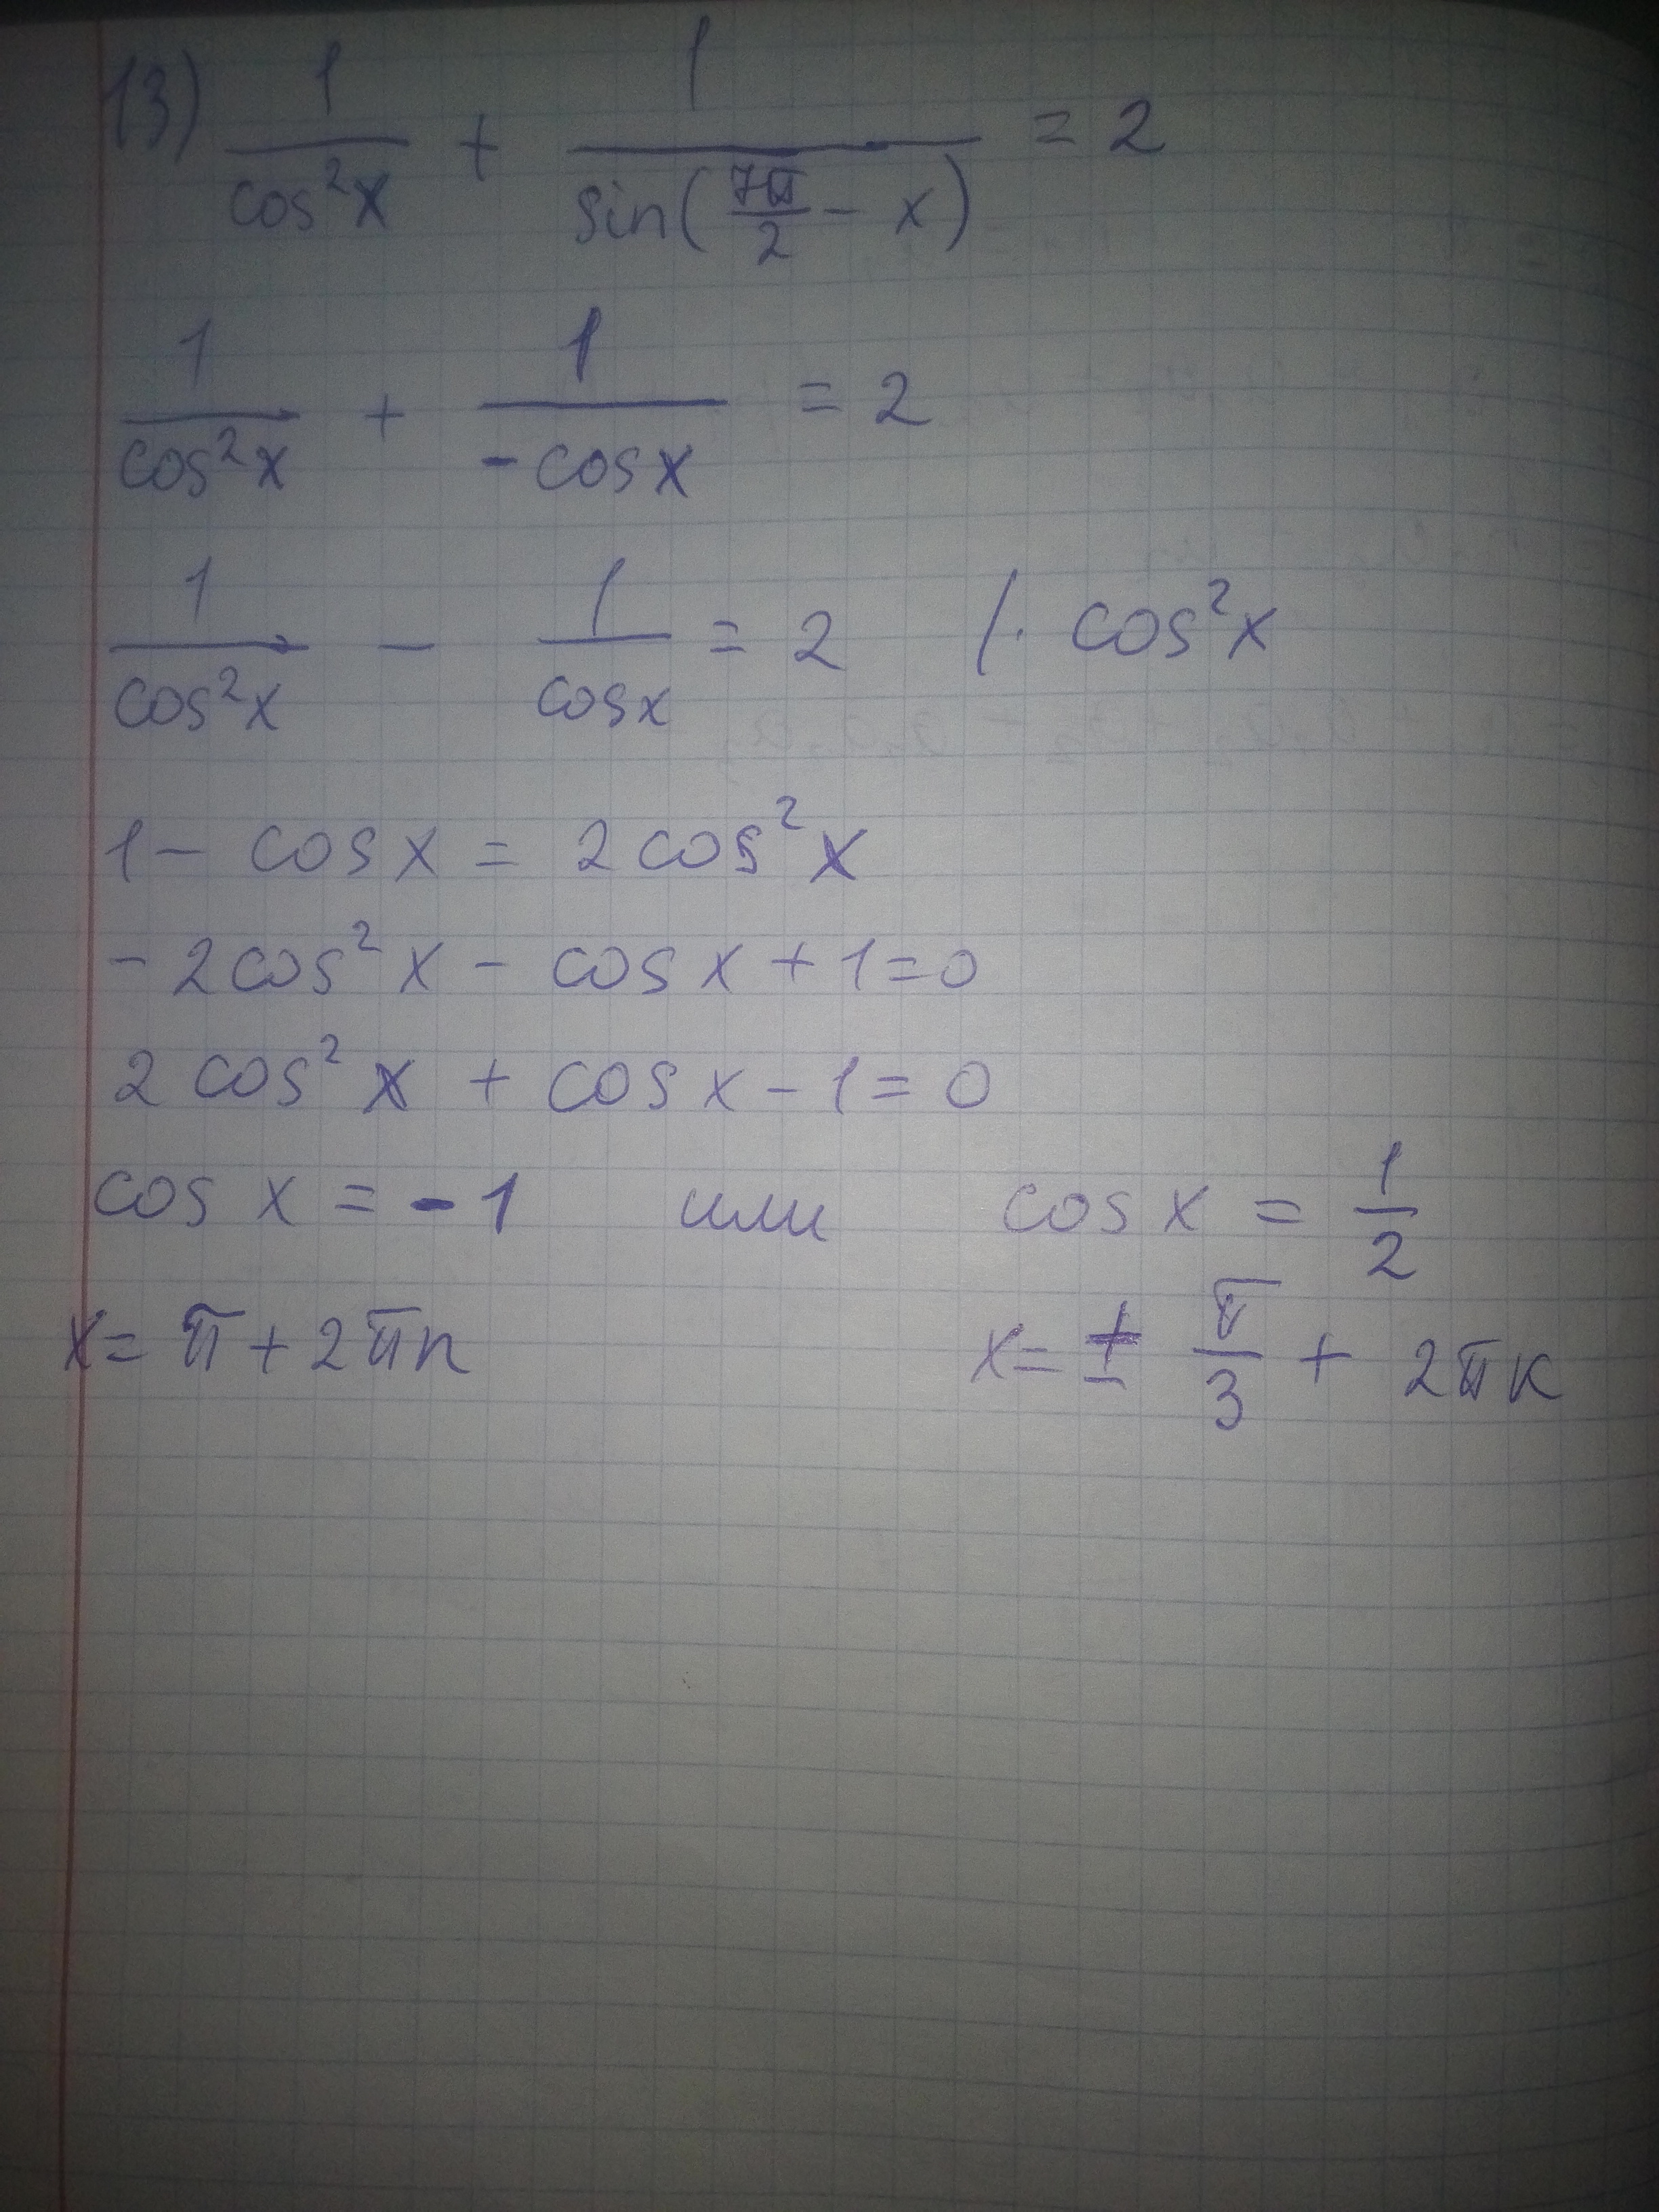 13) 1/cos²x + 1/sin(7π/2 - x) = 2
1/cos²x + 1/-cosx = 2
1/cos²x - 1/cosx = 2 /· cos²x
1 - cos x = 2cos²x
-2cos²x - cos x + 1 = 0
2 cos²x + cos x - 1 = 0
cos x = -1 или cos x = 1/2
x = π + 2πn x = ± π/3 + 2πk